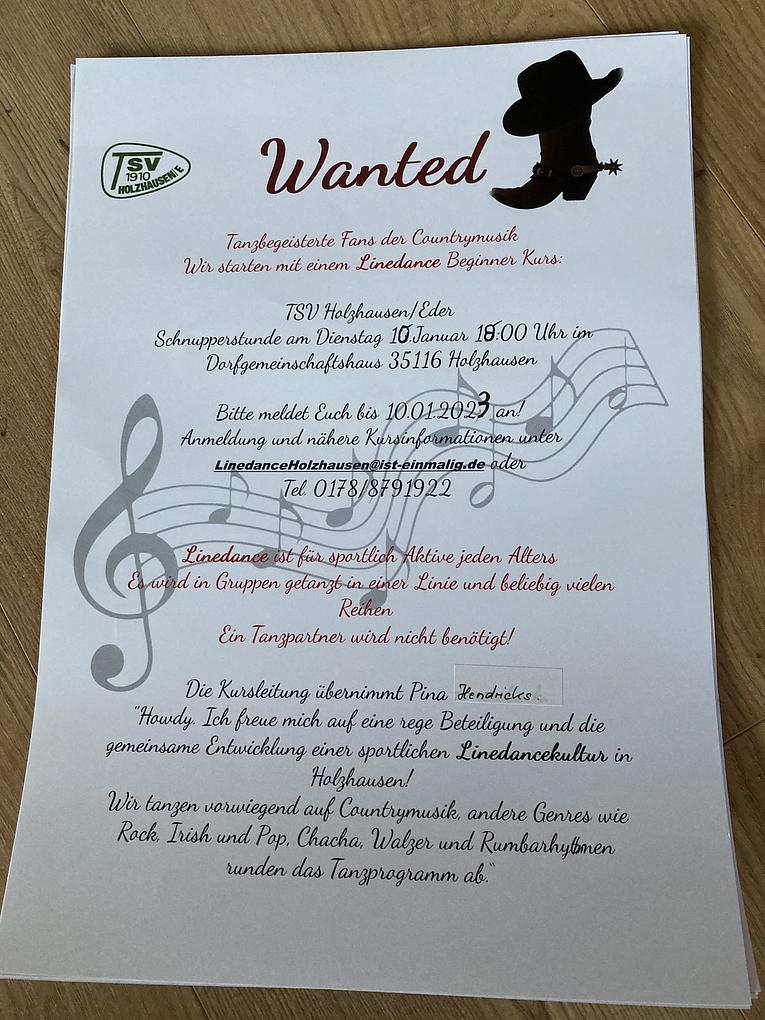 TSV
1910
HOLZHAUSEN/E
Wanted
Tanzbegeisterte Fans der Countrymusik
Wir starten mit einem Linedance Beginner Kurs:
TSV Holzhausen/Eder
Schnupperstunde am Dienstag 10.Januar 18:00 Uhr im
Dorfgemeinschaftshaus 35116 Holzhausen
Bitte meldet Euch bis 10.01.2023 an!
Anmeldung und nähere Kursinformationen unter
LinedanceHolzhausen@ist-einmalig.de oder
Tel. 0178/8791922
Linedance ist für sportlich Aktive jeden Alters
Es wird in Gruppen getanzt in einer Linie und beliebig vielen
Reihen
Ein Tanzpartner wird nicht benötigt!
Die Kursleitung übernimmt Pina Hendricks.
"Howdy. Ich freue mich auf eine rege Beteiligung und die
gemeinsame Entwicklung einer sportlichen Linedancekultur in
Holzhausen!
Wir tanzen vorwiegend auf Countrymusik, andere Genres wie
Rock, Irish und Pop, Chacha, Walzer und Rumbarhythmen
runden das Tanzprogramm ab."